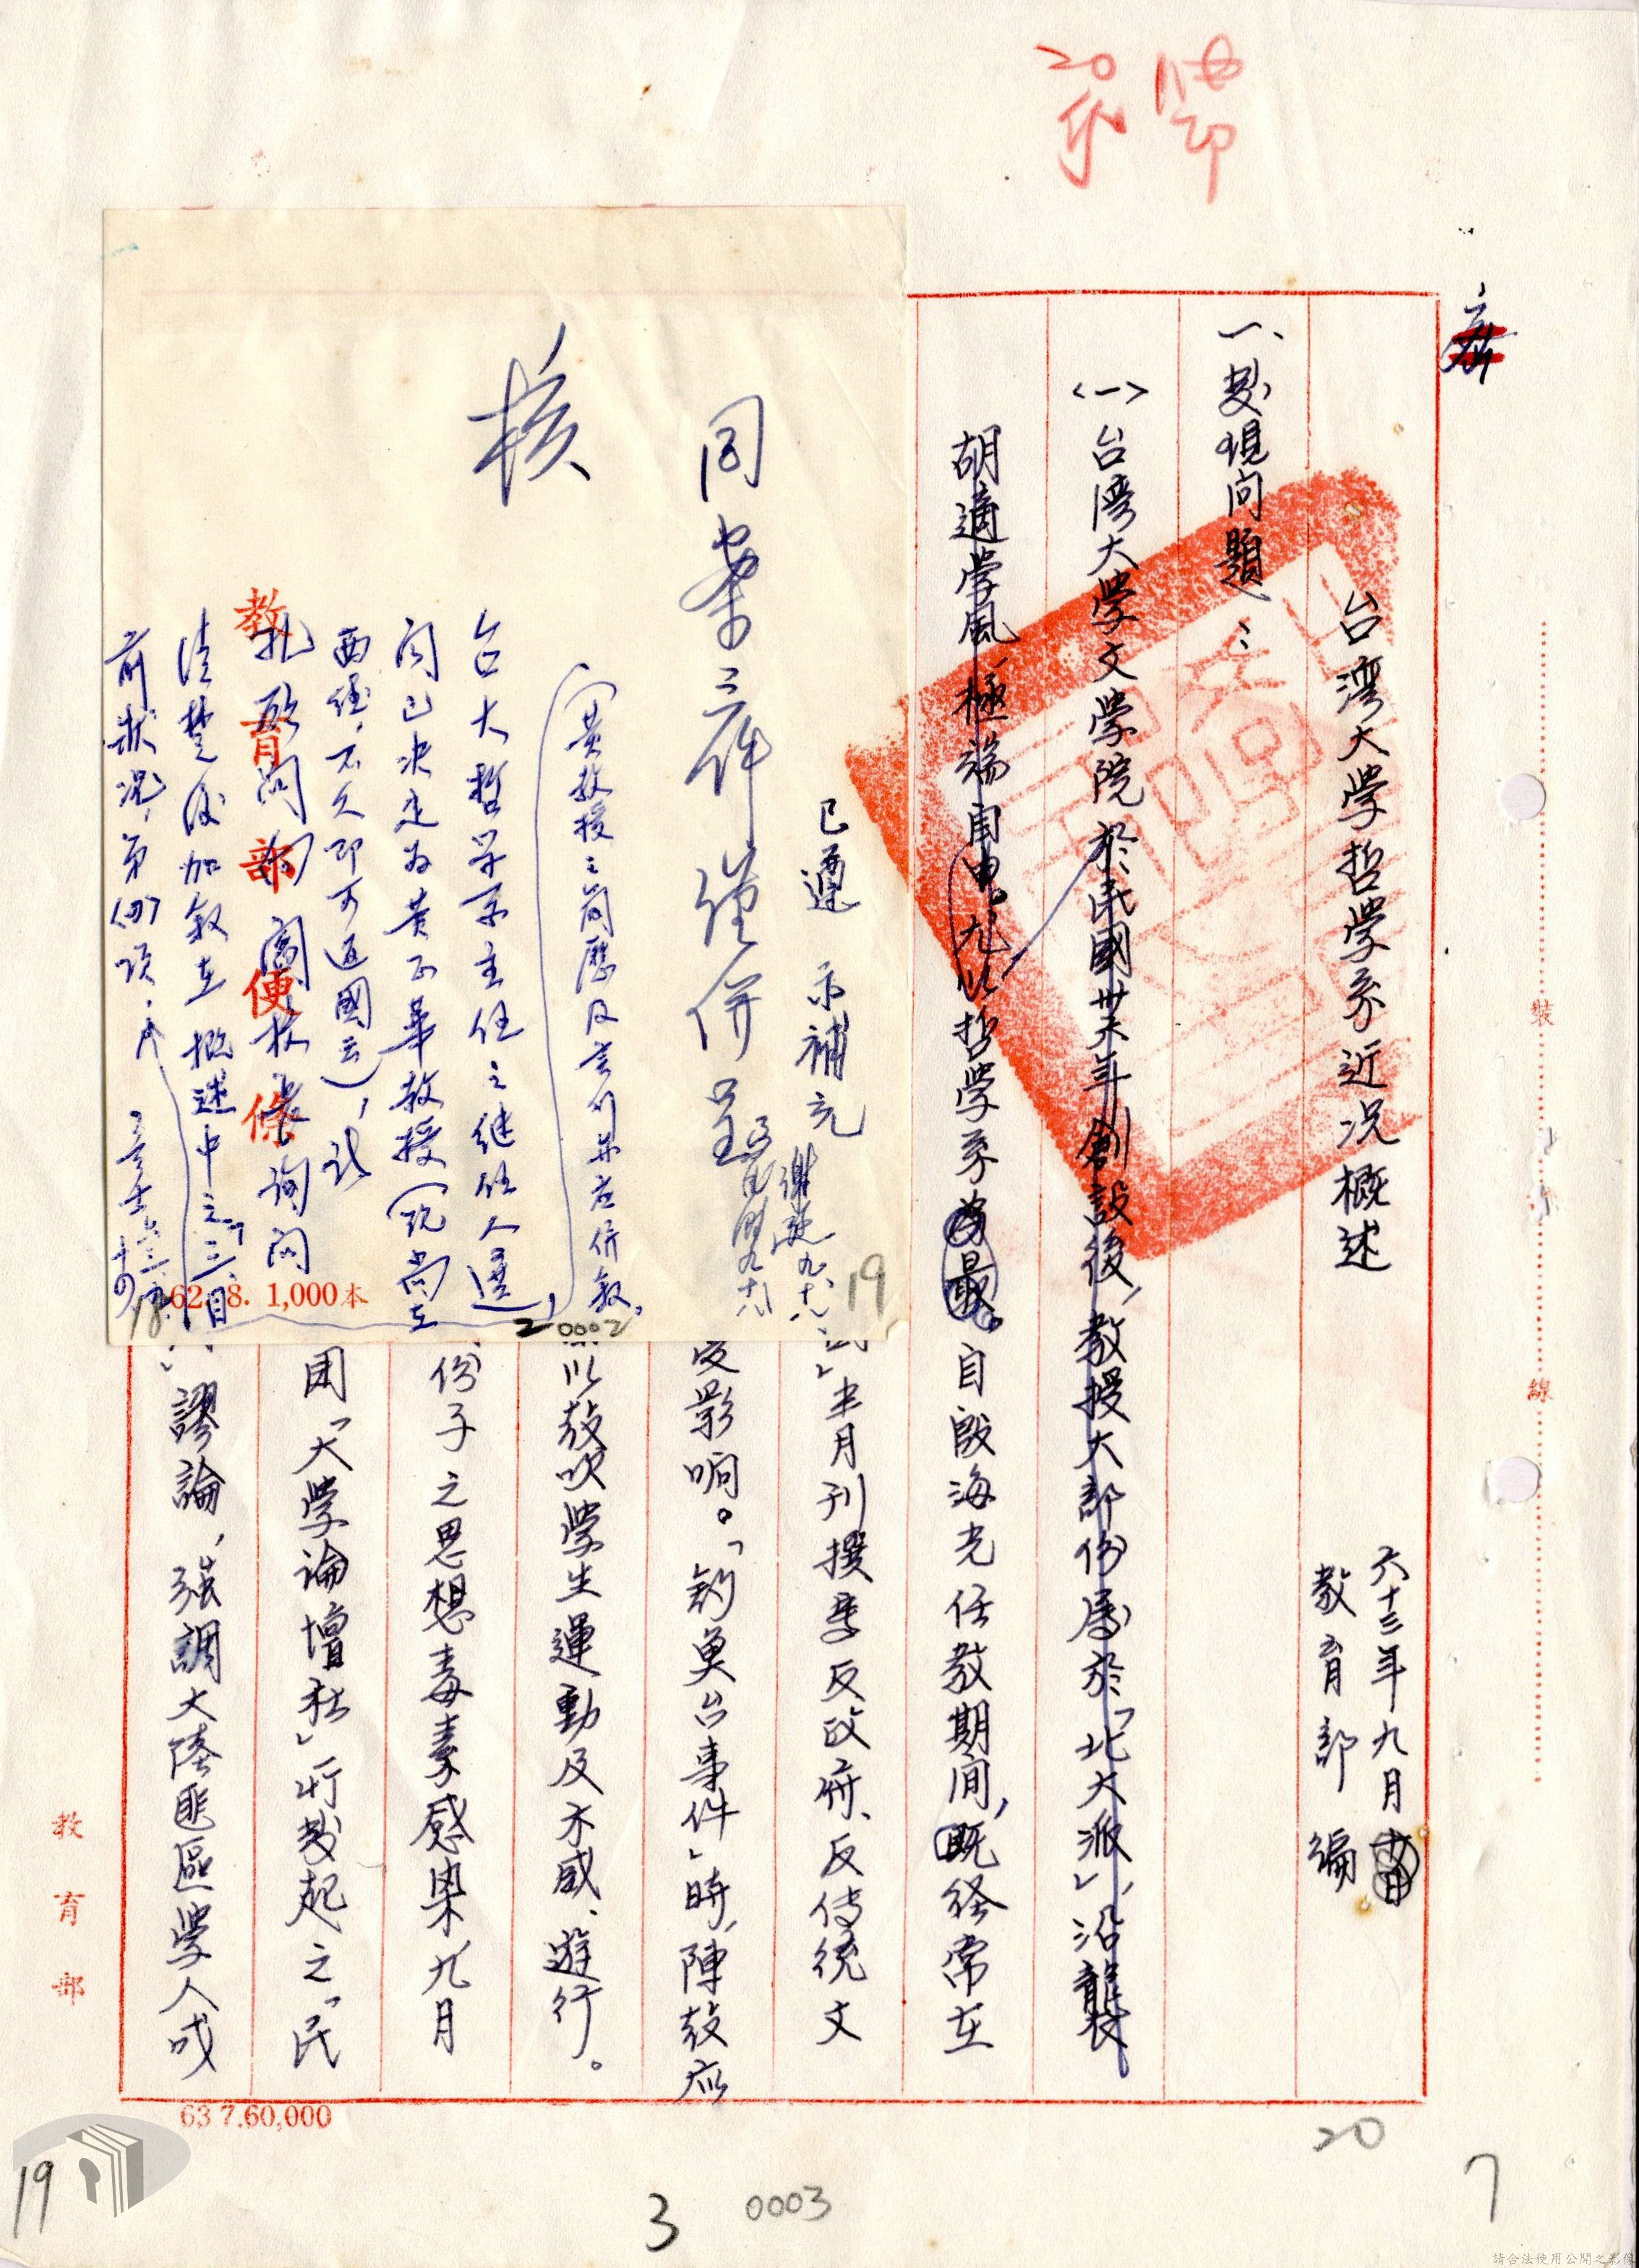 20
台灣大學哲學系近況概述
六十三年九月
教育部 編
一、發現問題：
〈一〉台灣大學文學院於民國卅六年創設後，教授大部份屬於「北大派」，沿襲
胡適學風，極端自由。尤以哲學系為最。自殷海光任教期間，既經常在
」半月刊撰爲反政府、反傳統文
受影响。「釣魚台事件」時，陳鼓應
以鼓吹學生運動及示威、遊行。
份子之思想毒素感染，九月
團「大學論壇社」所發起之「民
」謬論，强調大陸匪區學人成
已遵示補充
謝 九、十八
19
同案二併謹併呈
核
（黃教授之簡歷及言行並應併敘。
台大哲學系主任之繼任人選，
聞已決定為黃正華教授（現尚在
西德，不久即可返國云），請
閻校長詢問
清楚後加敘在概述中之「三、目
前狀況」第 項。
教育部便條
62. 8. 1,000本
18
2 0002
裝
線
教育部
63 7.60,000
19
3 0003
20
7
請合法使用公開之影像